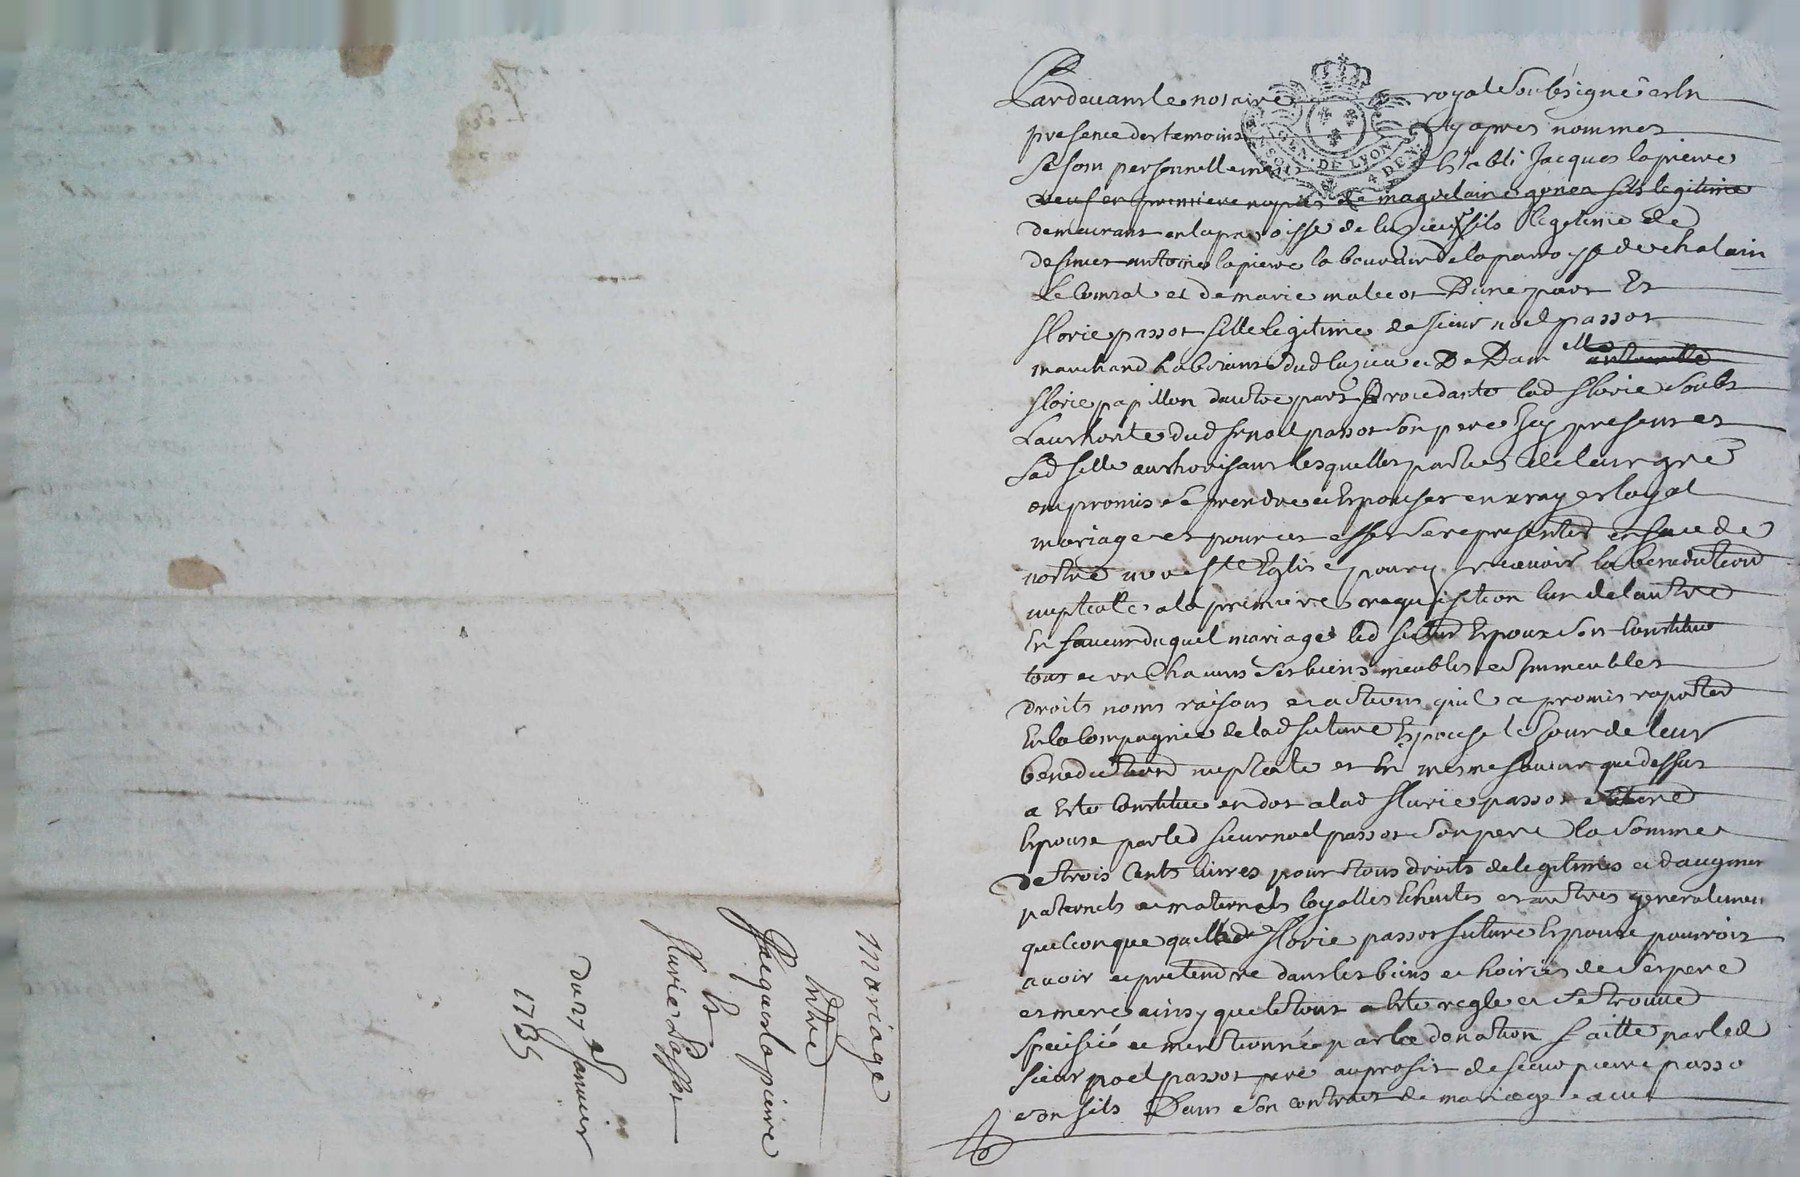 Pardevant le notaire royal Soubsigné et En
presence des temoins cy apres nommes
se sont personnellement Establi Jacques lapierre
veuf en premiere nopces de magdelaine fils legitime
demeurant en la parroisse de fils legitime de
deffunct antoine lapierre laboureur de la parroysse de chalain
le Comtal et de marie malecot D'une part Et
florie passot fille legitime de sieur noel passot
marchand habitant dud et De Dam elle
florie papillon d'autre part procedante lad florie Soubs
L'authorité dud Sr noel passot son pere Icy present et
sad fille authorisant lesquelles parties de leur gré
ont promis se prendre et Espouser en vray et loyal
mariage et pour cet effet se representer en face de
nostre mere ste Eglise pour y recevoir la benediction
nuptialle a la premiere requisition l'un de l'autre
En faveur duquel mariage led futur Espoux s'est Constitue
tous et un Chacuns ses biens meubles et Immeubles
droits noms raisons et actions qu'il a promis raporter
En la Compagnie de lad future Espouse le Jour de leur
benediction nuptiale et En mesme faveur que dessus
a Esté Constitue en dot a lad florie passot future
Espouse par led sieur noel passot son pere la somme
de trois Cents livres pour tous droits de legitimes et d'augment
paternels et maternels loyalles Echeutes et autres generalement
quelconque que lad florie passot future Espouse pourroit
avoir et pretendre dans les biens et hoiries de ses pere
et mere ainsy que le tout a Esté regle et se trouve
specifié et mentionnée par la donation faitte par led
sieur noel passot pere au profit de sieur pierre passo
son fils Dans son contrat de mariage avec
mariage
Entre
Jacques lapierre
Et
florie Passot
du 27e Janvier
1735
GEN. DE LYON
4 DEN.